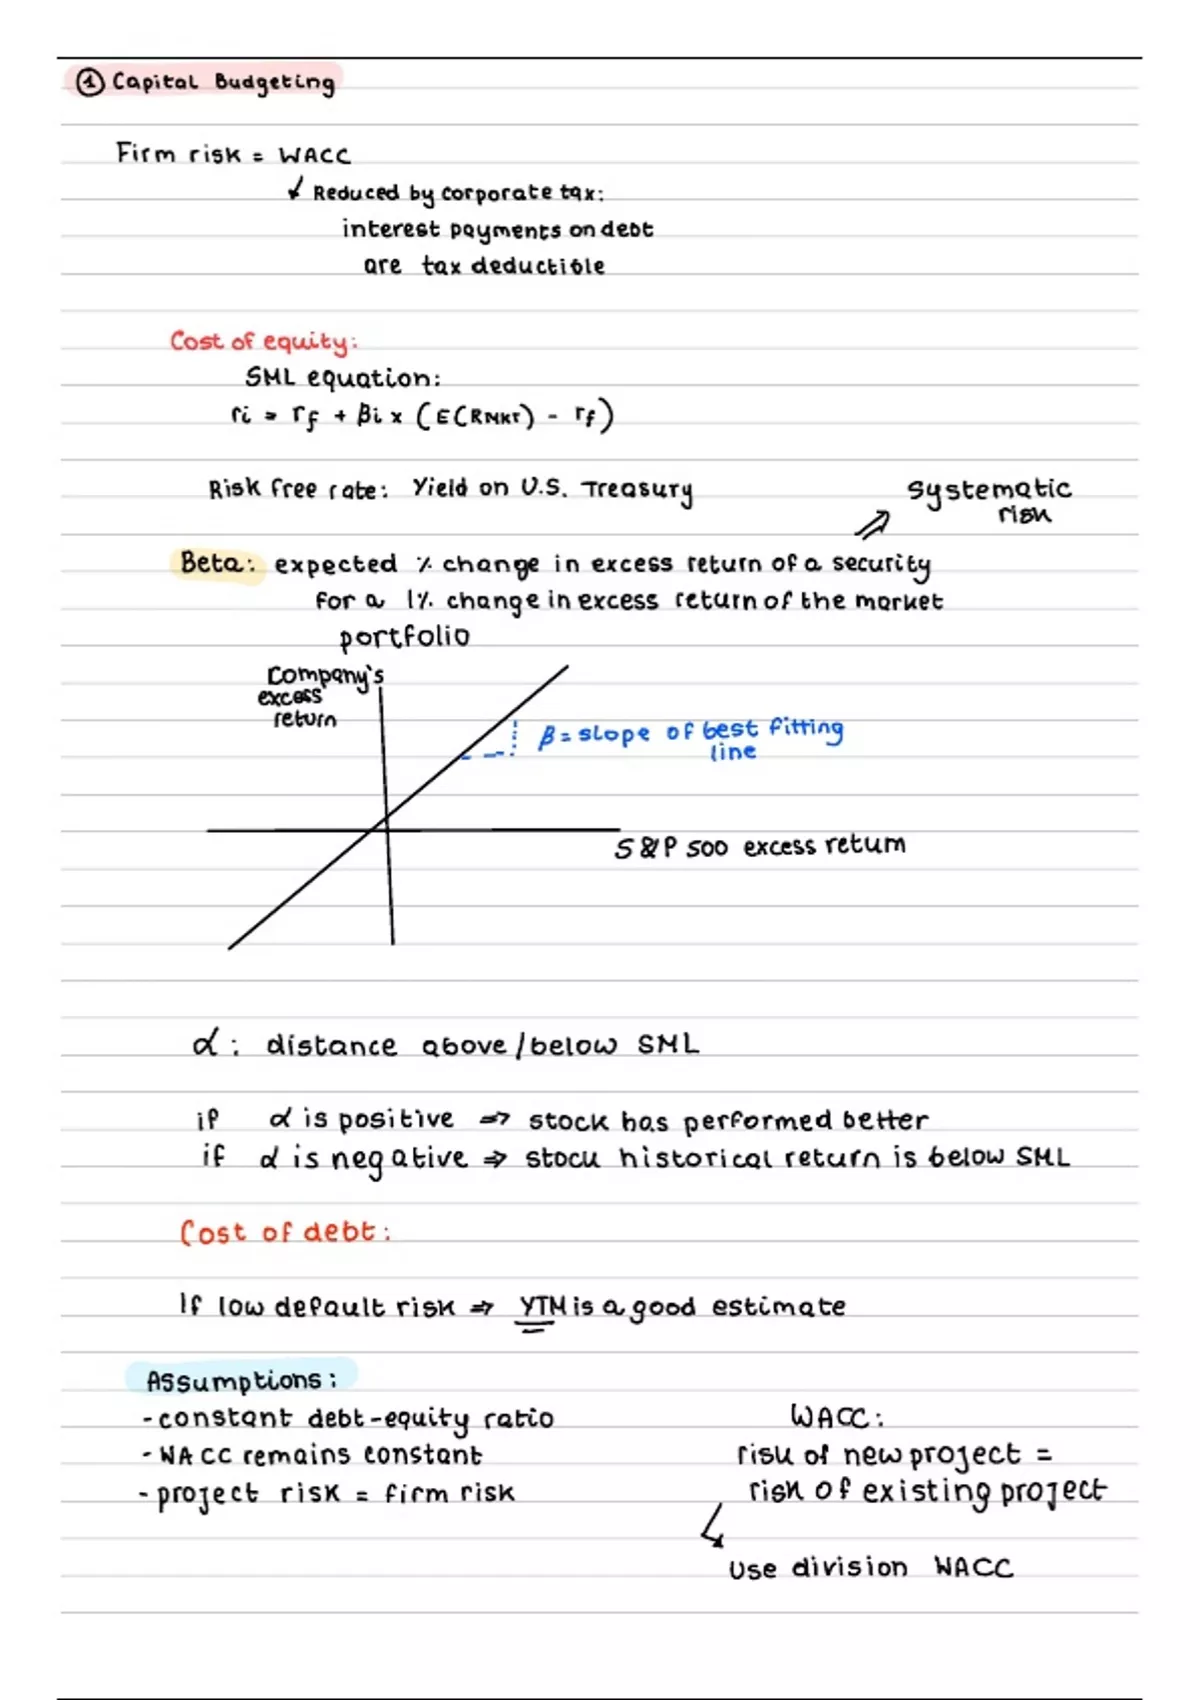 ① Capital Budgeting
Firm risk = WACC
↙ Reduced by corporate tax:
interest payments on debt
are tax deductible
Cost of equity:
SML equation:
ri = rf + βi x (E(RMKT) - rf)
Risk free rate: Yield on U.S. Treasury
⇗ systematic
risk
Beta: expected % change in excess return of a security
for a 1% change in excess return of the market
portfolio
Company's
excess
return
β = slope of best fitting
line
S&P 500 excess return
α: distance above/below SML
if α is positive ⇒ stock has performed better
if α is negative ⇒ stock historical return is below SML
Cost of debt:
If low default risk ⇒ YTM is a good estimate
Assumptions:
- constant debt-equity ratio
- WACC remains constant
- project risk = firm risk
WACC:
risk of new project =
risk of existing project
↳ Use division WACC